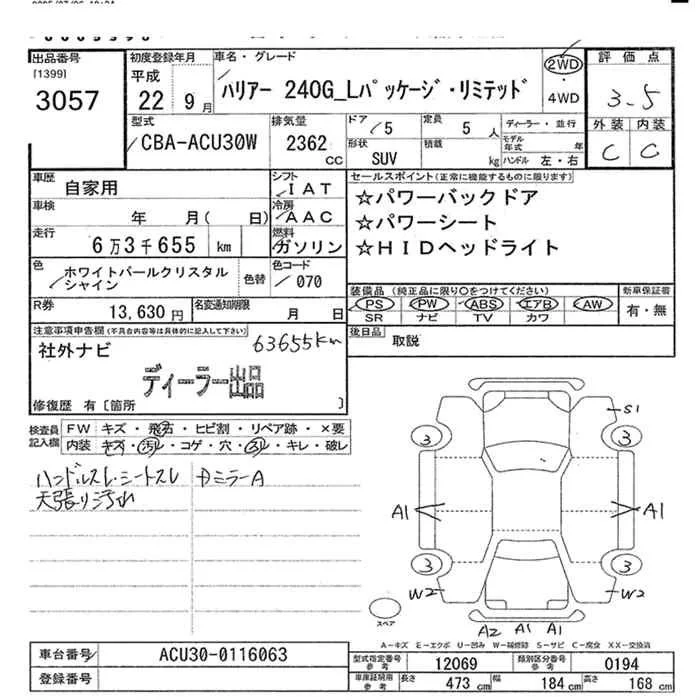 出品番号
[1399]
3057
初度登録年月
平成
22 9月
車名・グレード
ハリアー 240G_Lパッケージ・リミテッド
2WD
・
4WD
評価点
3.5
外装 内装
C C
型式
CBA-ACU30W
排気量
2362
CC
ドア
5
形状
SUV
定員
5 人
積載
kg
ディーラー・並行
モデル年式 年
ハンドル 左・右
車歴
自家用
シフト
IAT
車検
年 月( 日)
冷房
AAC
走行
6万3千655 km
燃料
ガソリン
色
ホワイトパールクリスタル
シャイン
色替
色コード
070
R券
13,630 円
名変通知期限
月 日
セールスポイント(正常に機能するものに限ります)
☆パワーバックドア
☆パワーシート
☆HIDヘッドライト
装備品 (純正品に限り○をつけてください)
PS PW ABS エアB AW
SR ナビ TV カワ
新車保証書
有・無
後日品
取説
注意事項申告欄(不具合内容等は具体的に記入して下さい)
社外ナビ
63655km
ディーラー出品
修復歴 有〔箇所 〕
検査員
記入欄
FW キズ・飛石・ヒビ割・リペア跡・×要
内装 キズ・汚レ・コゲ・穴・スレ・キレ・破レ
ハンドルスレ・シートスレ
天張り汚れ
ミラーA
S1
3 3
A1 A1
3 3
W2 W2
A2 A1 A1
スペア
A-キズ E-エクボ U-凹み W-補修跡 S-サビ C-腐食 XX-交換済
車台番号
ACU30-0116063
登録番号
型式指定番号
参考
12069
類別区分番号
参考
0194
車庫証明用
参考
長さ 473 cm 幅 184 cm 高さ 168 cm